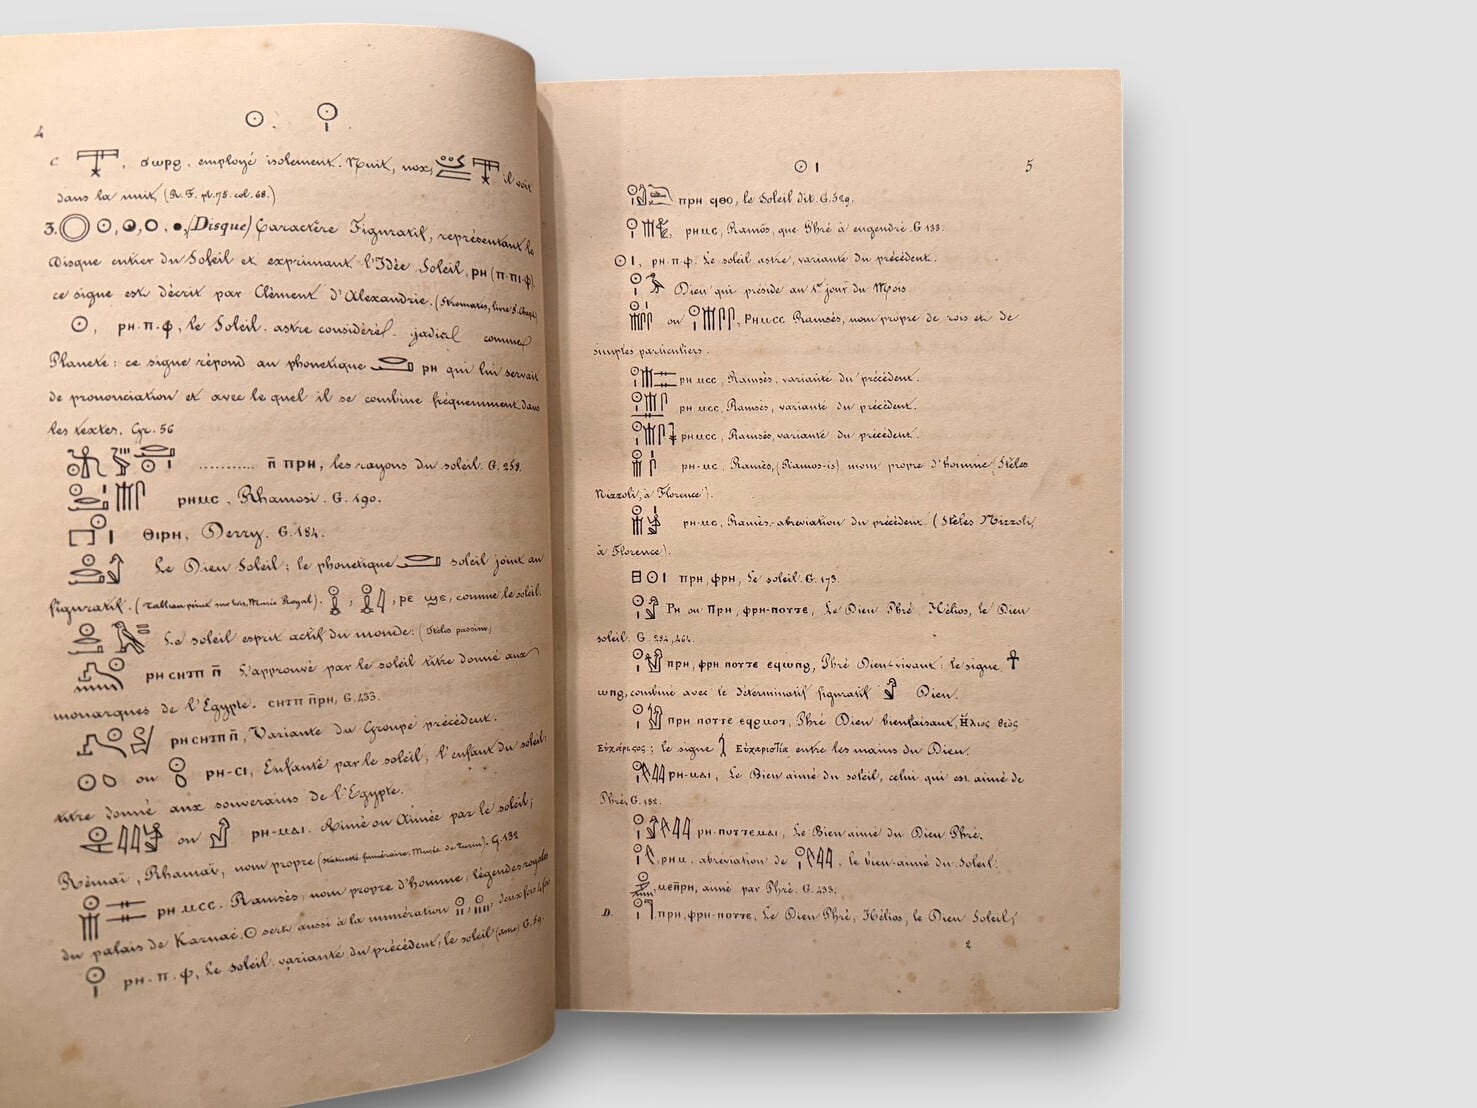 4
C. ϭωρϩ, employé isolement. Nuit, nox, il voit
dans la nuit, (R. F. pl. 75. col. 68.)
3. (Disque) Caractère Figuratif, représentant le
Disque entier du Soleil et exprimant l'Idée Soleil, ⲣⲏ (ⲡ·ⲡⲓ·ⲫ).
ce signe est décrit par Clément d'Alexandrie. (Stromates, livre 5. Chap.
ⲣⲏ·ⲡ·ⲫ, le Soleil. astre considéré jadis comme
Planete: ce signe répond au phonetique ⲣⲏ qui lui servait
de prononciation et avec le quel il se combine fréquemment dans
les textes. Gr. 56
............ ⲛ̄ ⲡⲣⲏ, les rayons du soleil. G. 258.
ⲣⲏⲙⲥ, Rhamosi. G. 190.
ⲑⲓⲣⲏ, Derry. G. 184.
Le Dieu Soleil; le phonetique soleil joint au
figuratif. (Tableau peint sur bois, Musée Royal). , , ⲣⲉ ϣⲉ, comme le soleil.
Le soleil esprit actif du monde: (Stèles passim)
ⲣⲏ ⲥⲏⲧⲡ ⲛ̄ L'approuvé par le soleil titre donné aux
monarques de l'Egypte. ⲥⲏⲧⲡ ⲛ̄ⲣⲏ, G. 433.
ⲣⲏ ⲥⲏⲧⲡ ⲛ̄, Variante du Groupe précédent.
ou ⲣⲏ-ⲥⲓ, Enfanté par le soleil, l'enfant du soleil:
titre donné aux souverains de l'Egypte.
ou ⲣⲏ-ⲙⲁⲓ. Aimé ou Aimée par le soleil;
Rémaï, Rhamaï, nom propre (statuette funéraire, Musée de Turin). G. 132
ⲣⲏ ⲙⲥⲥ. Ramsès, nom propre d'homme; légendes royales
du palais de Karnac. sert aussi à la numération , , deux fois 4 fois
ⲣⲏ·ⲡ·ⲫ, Le soleil. variante du précédent; le soleil (ame) G. 59.
5
ⲡⲣⲏ ϥⲑⲟ, le Soleil dit. G. 329.
ⲣⲏⲙⲥ, Ramôs, que Phré à engendré. G. 133.
, ⲣⲏ·ⲡ·ⲫ. Le soleil astre, variante du précédent.
Dieu qui préside au 1er jour du Mois.
ou , ⲣⲏⲙⲥⲥ Ramsès, nom propre de rois et de
simples particuliers.
ⲣⲏ ⲙⲥⲥ, Ramsès, variante du précédent.
ⲣⲏ ⲙⲥⲥ, Ramsès, variante du précédent.
ⲣⲏ ⲙⲥⲥ, Ramsès, variante du précédent.
ⲣⲏ-ⲙⲥ, Ramès, (Ramos-is), nom propre d'homme (Stèles
Nizzoli, à Florence).
ⲣⲏ-ⲙⲥ, Ramès, abreviation du précédent. (Stèles Nizzoli,
à Florence).
ⲡⲣⲏ, ⲫⲣⲏ, Le soleil. G. 173.
ⲣⲏ ou ⲡⲣⲏ, ⲫⲣⲏ-ⲛⲟⲩⲧⲉ, Le Dieu Phré, Hélios, le Dieu
soleil. G. 284, 464.
ⲡⲣⲏ, ⲫⲣⲏ ⲛⲟⲩⲧⲉ ⲉϥⲱⲛϩ, Phré Dieu vivant: le signe
ⲱⲛϩ, combiné avec le déterminatif figuratif Dieu.
ⲡⲣⲏ ⲛⲟⲩⲧⲉ ⲉϥϩⲙⲟⲧ, Phré Dieu bienfaisant, Ἥλιος θεὸς
Εὐχάριςος; le signe Εὐχαριςτία entre les mains du Dieu.
ⲣⲏ-ⲙⲁⲓ, Le Bien aimé du soleil, celui qui est aimé de
Phré, G. 132.
ⲣⲏ-ⲛⲟⲩⲧⲉ ⲙⲁⲓ, Le Bien aimé du Dieu Phré.
, ⲣⲏ ⲙ. abréviation de , le bien-aimé du Soleil:
, ⲙⲉⲛ̄ⲣⲏ, aimé par Phré. G. 433.
D. ⲡⲣⲏ, ⲫⲣⲏ-ⲛⲟⲩⲧⲉ, Le Dieu Phré, Hélios, le Dieu Soleil;
2